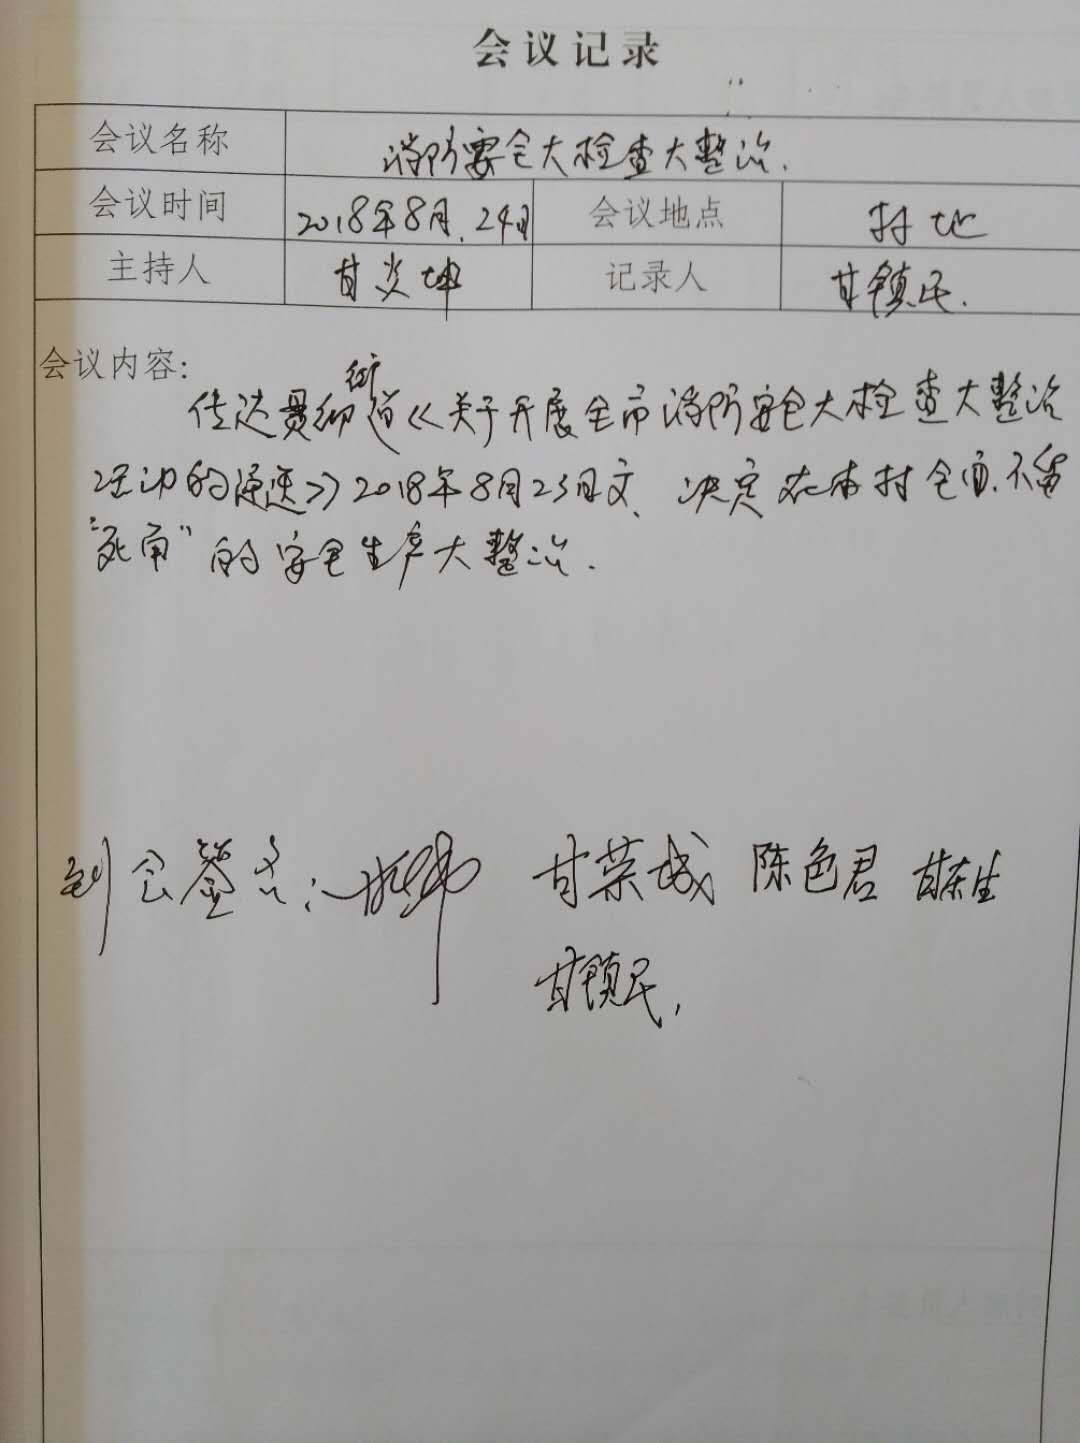 会议记录
会议名称 消防安全大检查大整治.
会议时间 2018年8月.24日 会议地点 村地
主持人 甘炎坤 记录人 甘镇民.
会议内容:
传达贯彻街道《关于开展全市消防安全大检查大整治
活动的通速》2018年8月23日文、决定在本村全面.不留
"死角"的安全生产大整治.
到会签名: 甘荣城 陈色君 甘东生
甘镇民,